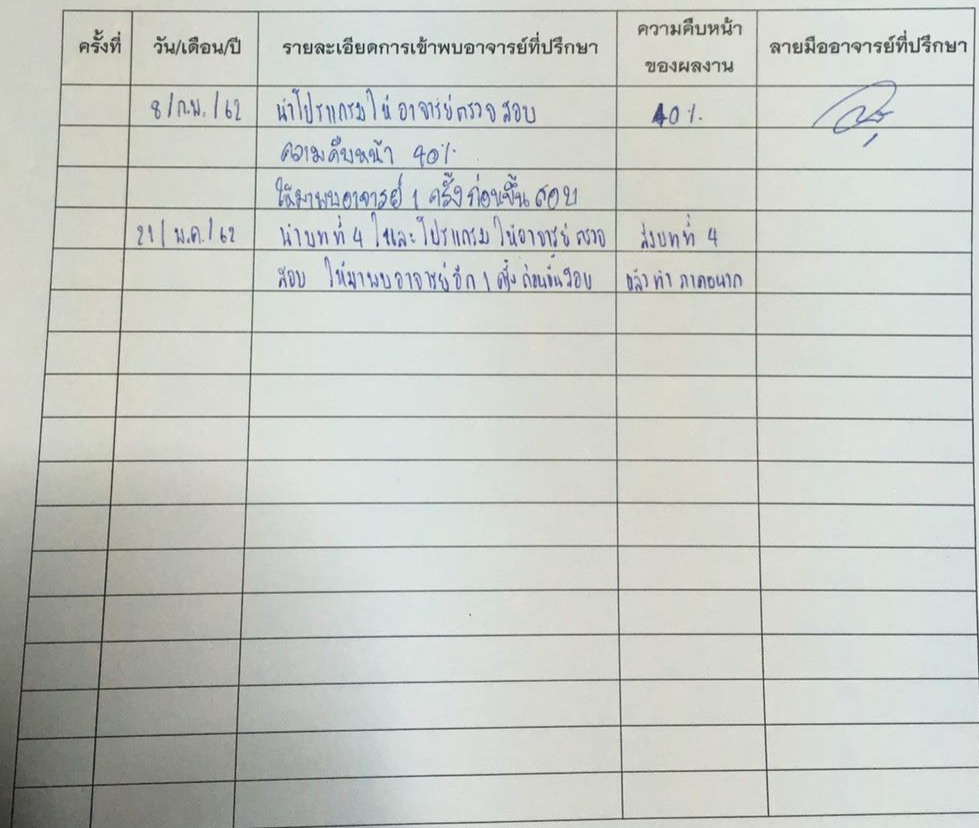 ครั้งที่ วัน/เดือน/ปี รายละเอียดการเข้าพบอาจารย์ที่ปรึกษา ความคืบหน้า ของผลงาน ลายมืออาจารย์ที่ปรึกษา
8/ก.พ./62 นำโปรแกรมให้อาจารย์ตรวจสอบ 40%
ความคืบหน้า 40%
ให้มาพบอาจารย์ 1 ครั้งก่อนขึ้นสอบ
21/พ.ค./62 นำบทที่ 4 และโปรแกรมให้อาจารย์ตรวจ ส่งบทที่ 4
สอบ ให้มาพบอาจารย์อีก 1 ครั้ง ก่อนขึ้นสอบ แล้วทำ ภาคผนวก